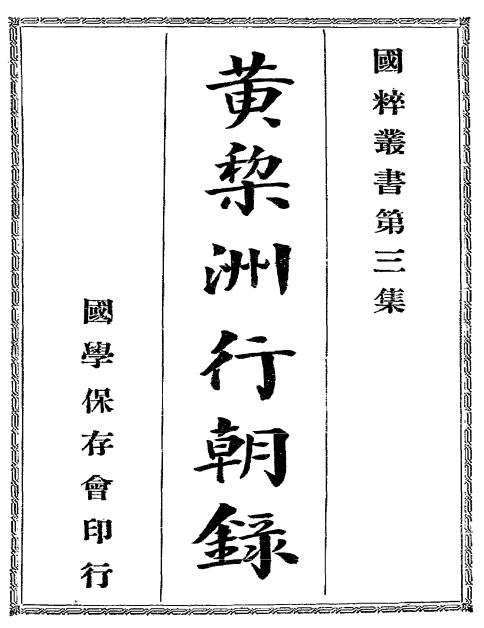 國粹叢書第三集
黃梨洲行朝錄
國學保存會印行